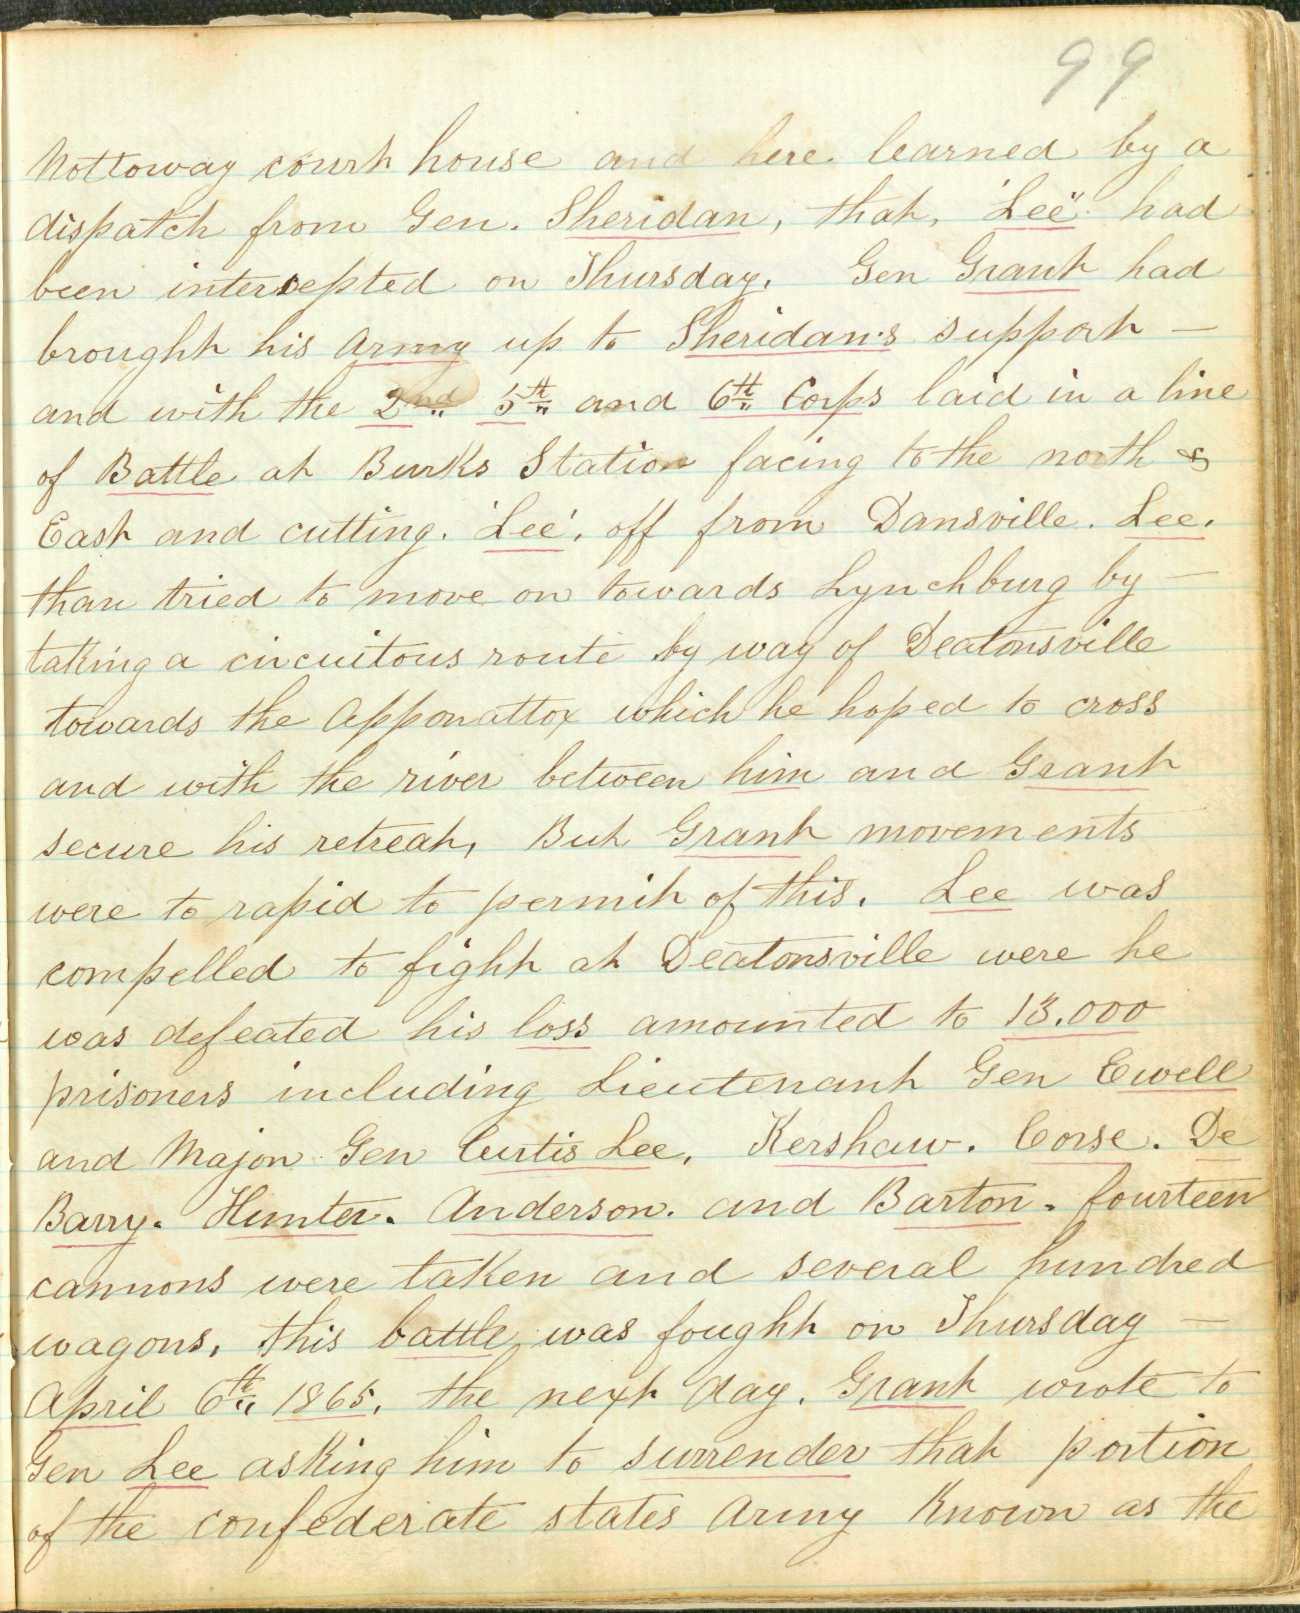 99
Nottoway court house and here learned by a
dispatch from Gen. Sheridan, that, 'Lee". had
been intercepted on Thursday. Gen Grant had
brought his Army up to Sheridan's support —
and with the 2nd 5th and 6th Corps laid in a line
of Battle at Burks Station facing to the north &
East and cutting. 'Lee'. off from Dansville. Lee.
than tried to move on towards Lynchburg by —
taking a circuitous route by way of Deatonsville
towards the Apponattox which he hoped to cross
and with the river between him and Grant
secure his retreat, But Grant movements
were to rapid to permit of this. Lee was
compelled to fight at Deatonsville were he
was defeated his loss amounted to 13.000
prisoners including Lieutenant Gen Ewell
and Major Gen Curtis Lee, Kershaw. Corse. De
Barry. Hunter. Anderson. and Barton. fourteen
cannons were taken and several hundred
wagons, this battle was fought on Thursday —
April 6th 1865, the next day. Grant wrote to
Gen Lee asking him to surrender that portion
of the confederate states Army Known as the